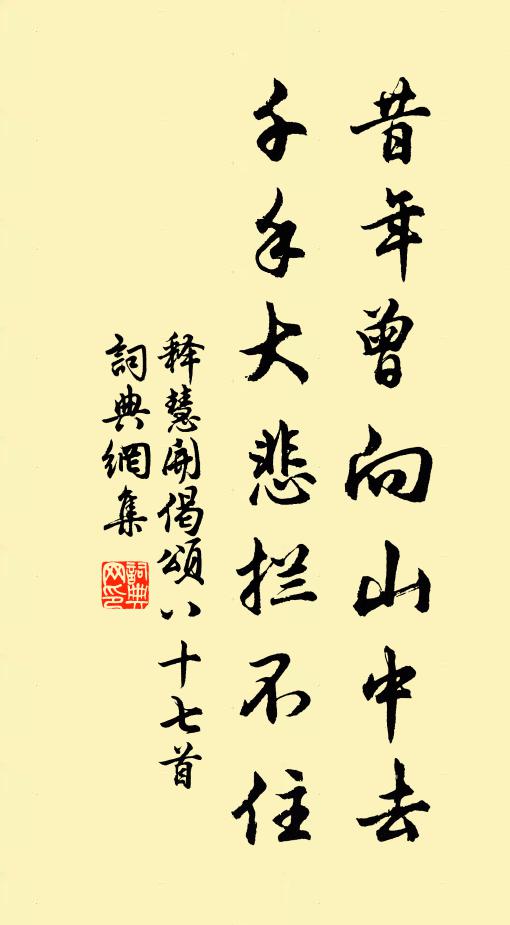 昔年曾向山中去
千手大悲拦不住
释慧開偈頌八十七首
詞典網集
詞典网印